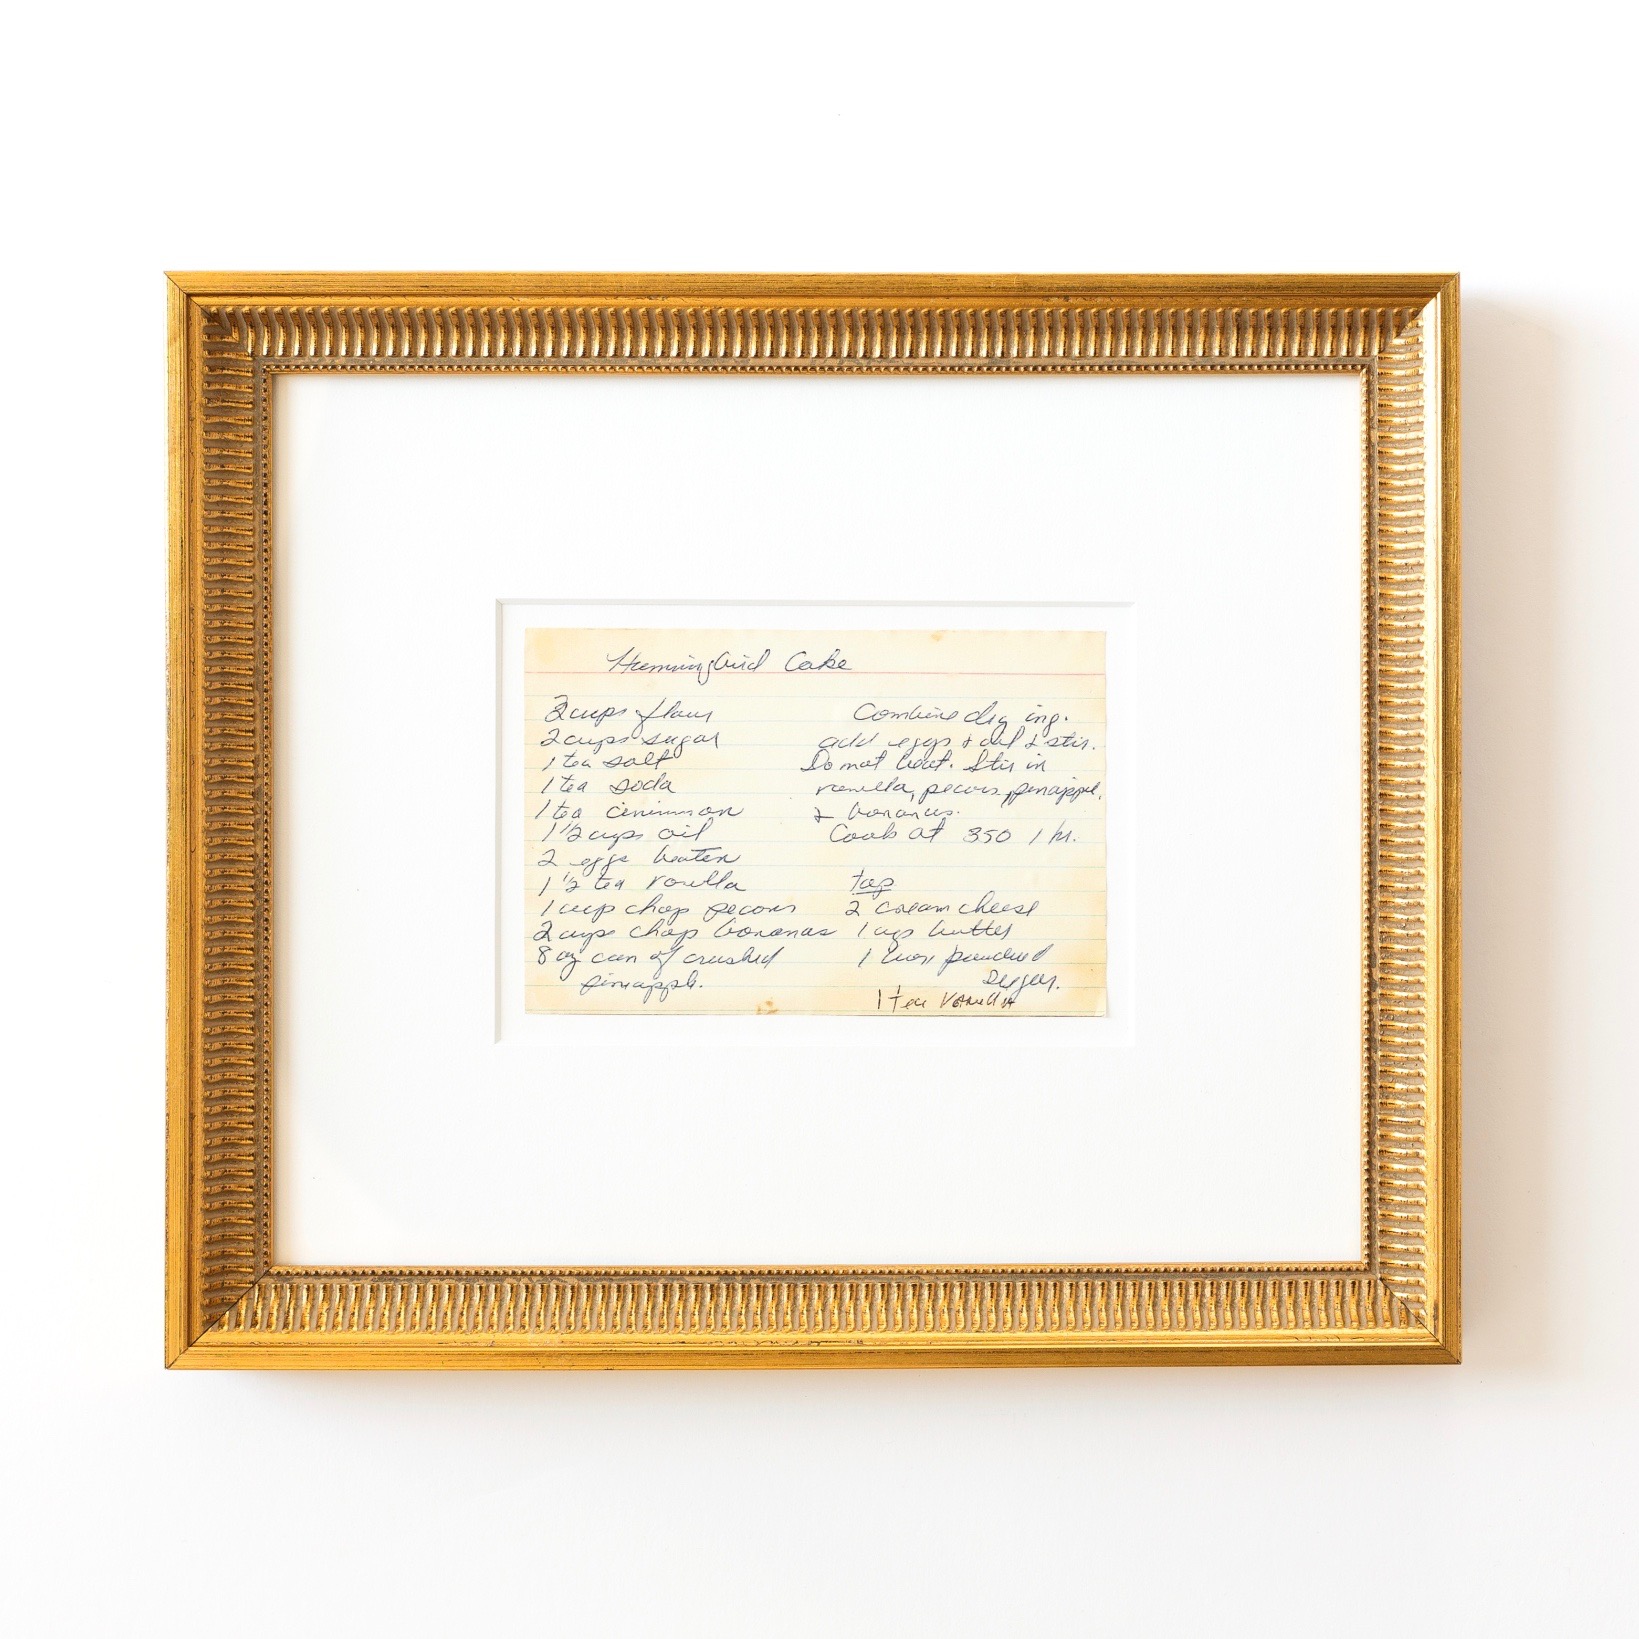 Hummingbird Cake
3 cups flour
2 cups sugar
1 tea salt
1 tea soda
1 tea cinimmon
1 1/2 cups oil
2 eggs beaten
1 1/2 tea vanilla
1 cup chop pecans
2 cups chop bananas
8 oz can of crushed
pineapple.
Combine dry ing.
add eggs + oil & stir.
Do not beat. Stir in
vanilla, pecans, pineapple,
& bananas.
Cook at 350 1 hr.
top
2 cream cheese
1 cup butter
1 box powdered
sugar.
1 tea vanilla